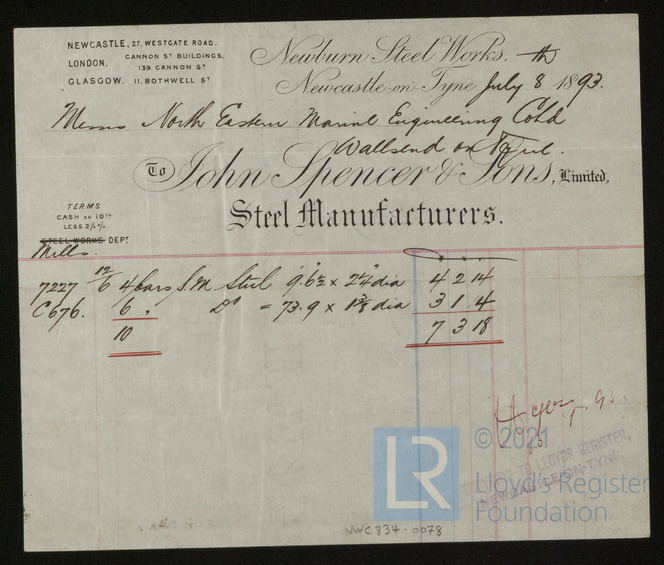 NEWCASTLE, 27. WESTGATE ROAD.
LONDON, CANNON ST BUILDINGS, 139. CANNON ST
GLASGOW, 11. BOTHWELL ST
Newburn Steel Works.
Newcastle-on-Tyne July 8th 1893.
Messrs North Eastern Marine Engineering Co Ld
Wallsend on Tyne.
To John Spencer & Sons, Limited,
Steel Manufacturers.
TERMS
CASH ON 10TH
LESS 2½ %.
STEEL WORKS DEPT
Mills.
7227 12/6 4 bars S.M. Steel 9.6½ x 2¼" dia 4 2 14
C676. 6 " Do = 73.9 x 1⅜ dia 3 1 4
10 7 3 18
TO LLOYDS REGISTER,
NEWCASTLE-ON-TYNE
LR © 2021
Lloyd's Register
Foundation
NWC834-0078